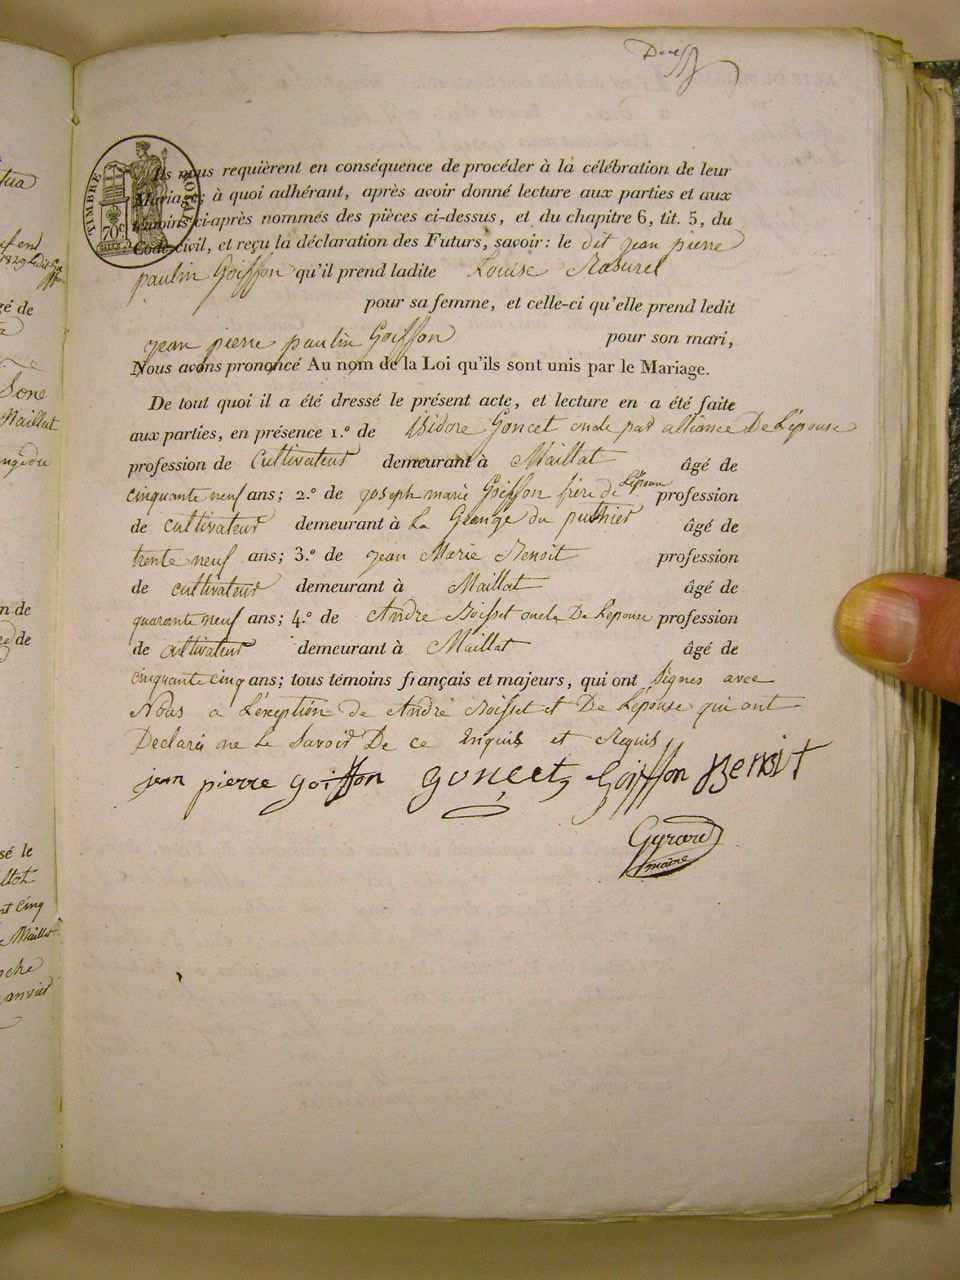 TIMBRE ROYAL
70c
Ils nous requièrent en conséquence de procéder à la célébration de leur
Mariage; à quoi adhérant, après avoir donné lecture aux parties et aux
témoins ci-après nommés des pièces ci-dessus, et du chapitre 6, tit. 5, du
Code civil, et reçu la déclaration des Futurs, savoir: le dit jean pierre
paulin Goiffon qu'il prend ladite Louise Rasurel
pour sa femme, et celle-ci qu'elle prend ledit
jean pierre paulin Goiffon pour son mari,
Nous avons prononcé Au nom de la Loi qu'ils sont unis par le Mariage.
De tout quoi il a été dressé le présent acte, et lecture en a été faite
aux parties, en présence 1.º de isidore Goncet oncle par alliance De Lépouse
profession de Cultivateur demeurant à Maillat âgé de
cinquante neuf ans; 2.º de joseph marie Goiffon frère de Lépoux profession
de cultivateur demeurant à La Grange du puthier âgé de
trente neuf ans; 3.º de jean Marie Benoit profession
de cultivateur demeurant à Maillat âgé de
quarante neuf ans; 4.º de André Boisset oncle De Lépouse profession
de cultivateur demeurant à Maillat âgé de
cinquante cinq ans; tous témoins français et majeurs, qui ont signés avec
Nous a Léxeption de André Boisset et De Lépouse qui ont
Déclaré ne Le Savoir De ce Enquis et Requis
jean pierre goiffon goncet Goiffon Benoit
Gyrard
maire